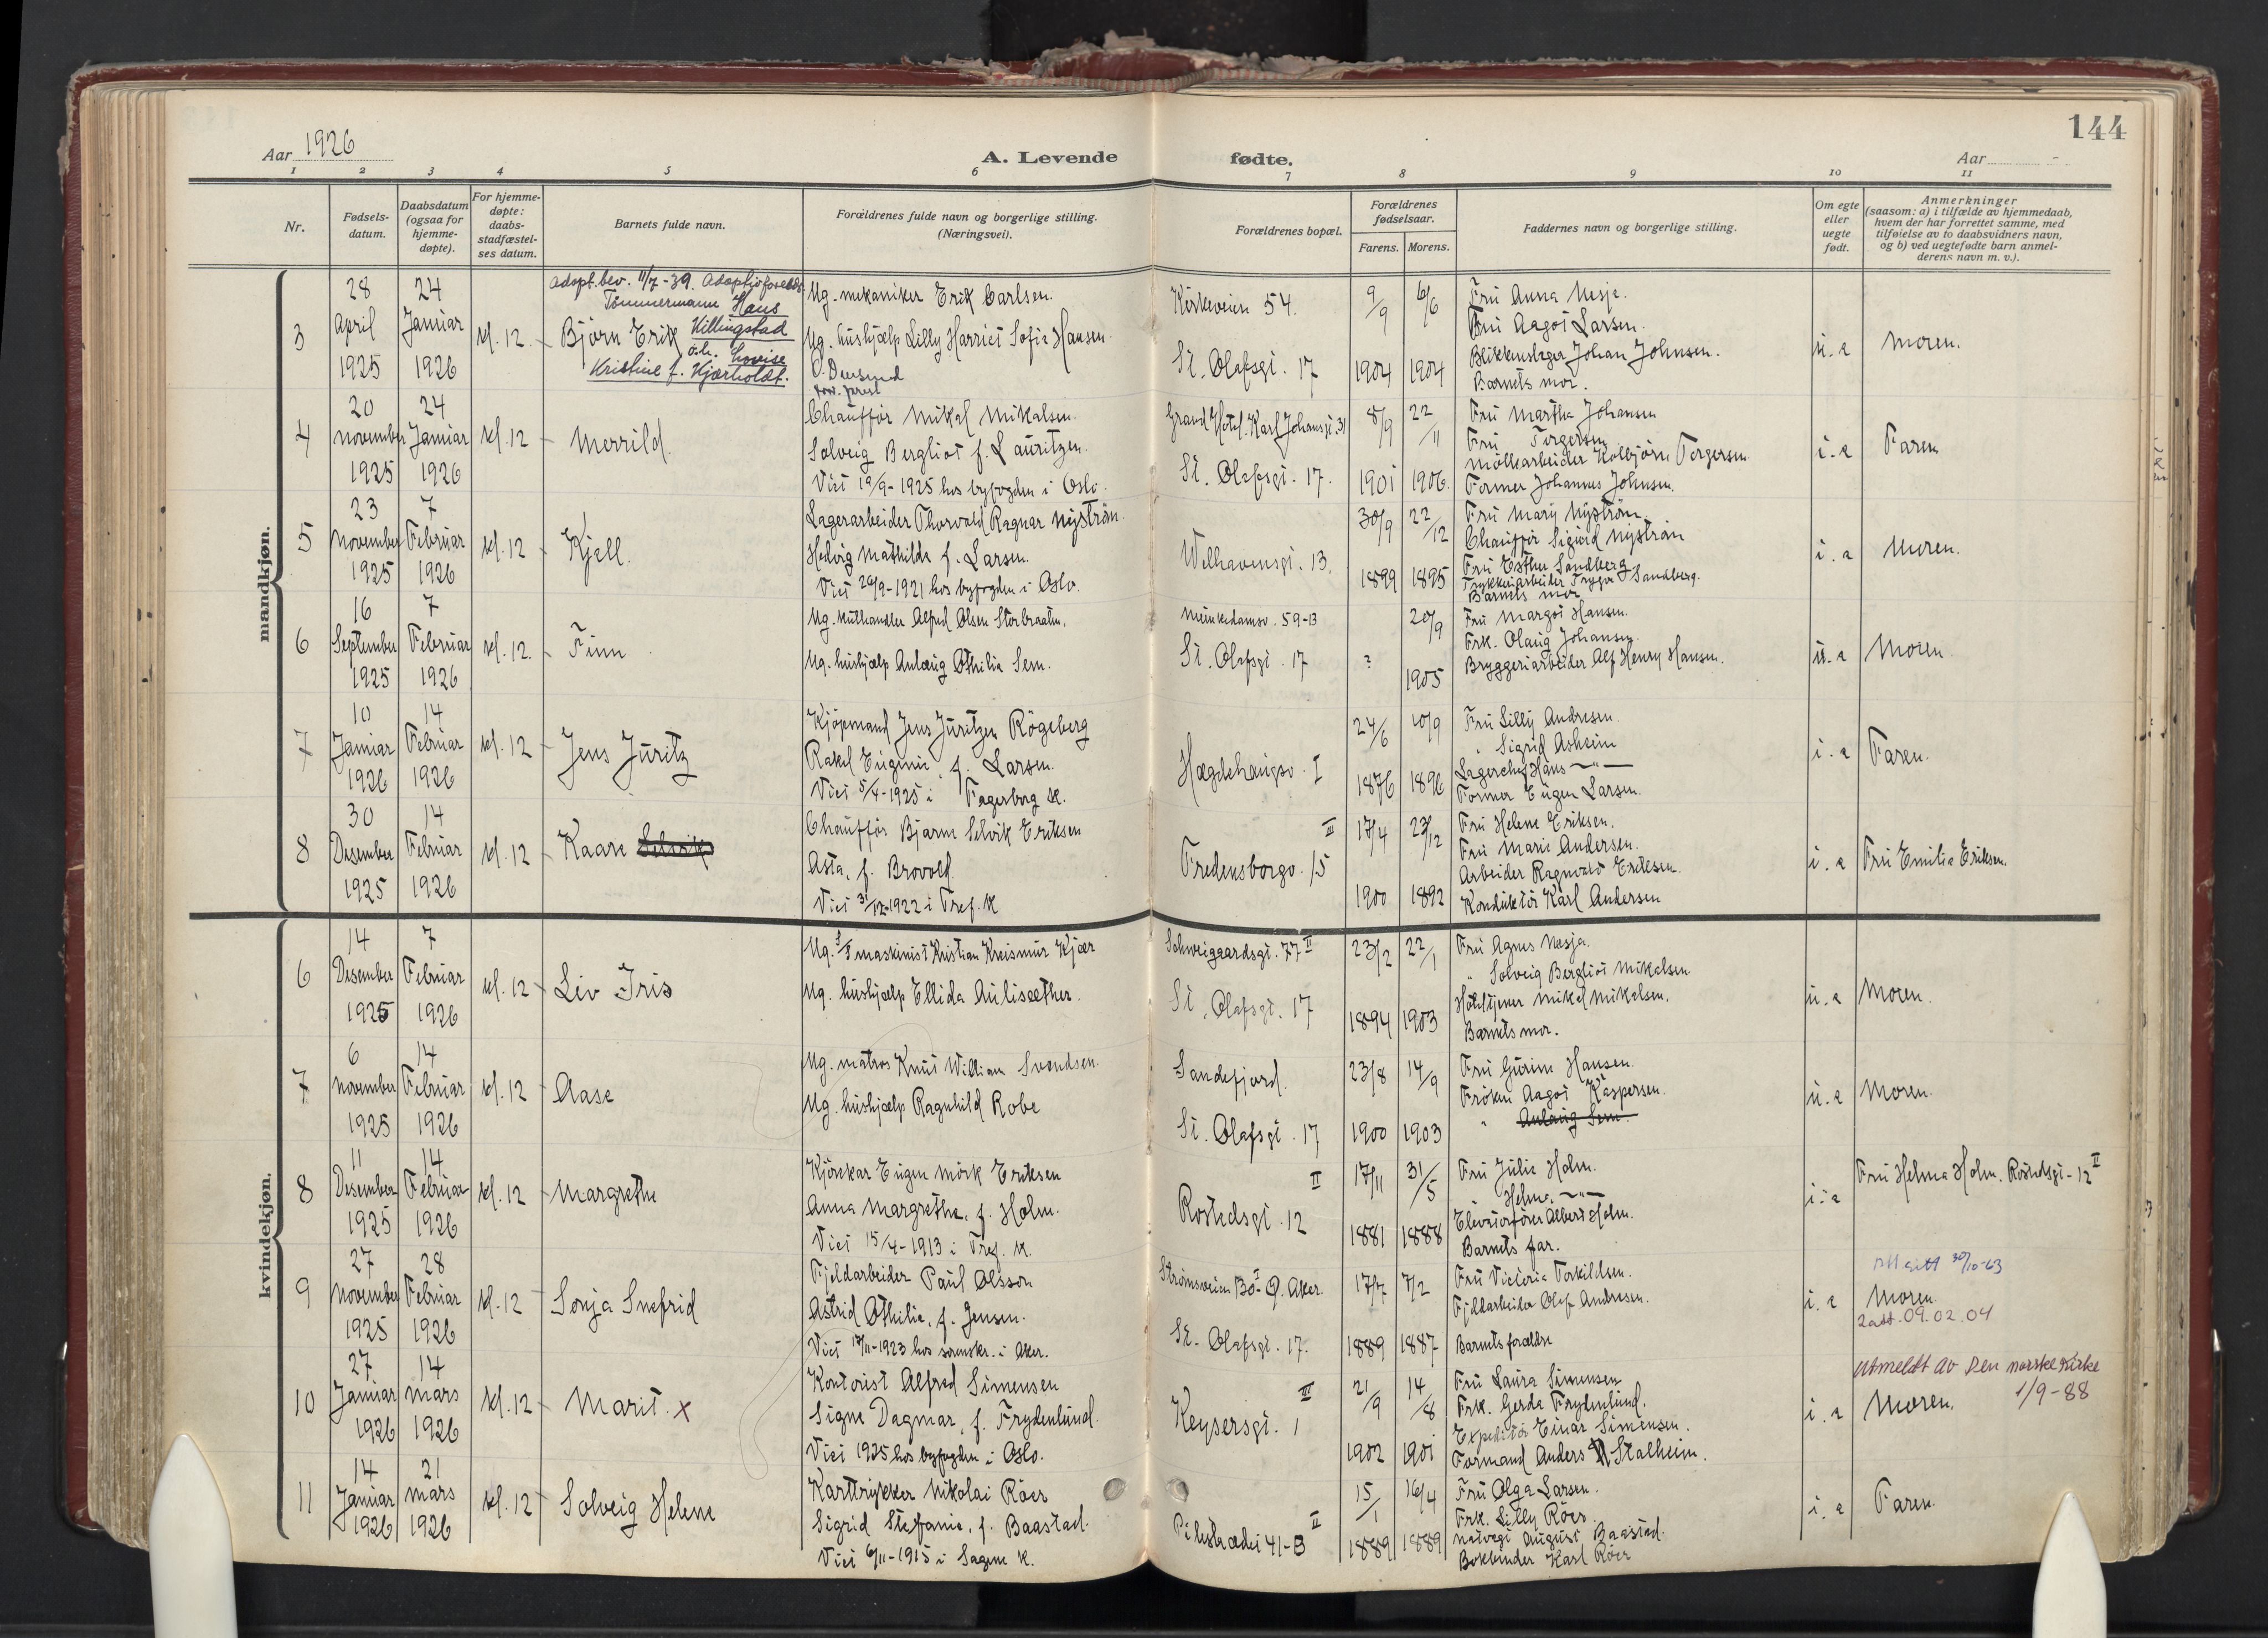 144
Aar 1926
A. Levende fødte.
Aar
1 2 3 4 5 6 7 8 9 10 11
Nr.
Fødsels-
datum.
Daabsdatum
(ogsaa for
hjemme-
døpte).
For hjemme-
døpte:
daabs-
stadfæstel-
ses datum.
Barnets fulde navn.
Forældrenes fulde navn og borgerlige stilling.
(Næringsvei).
Forældrenes bopæl.
Forældrenes
fødselsaar.
Farens. Morens.
Faddernes navn og borgerlige stilling.
Om egte
eller
uegte
født.
Anmerkninger
(saasom: a) i tilfælde av hjemmedaab,
hvem der har forrettet samme, med
tilføielse av to daabsvidners navn,
og b) ved uegtefødte barn anmel-
derens navn m. v.).
mandkjøn.
3
28
April
1925
24
Januar
1926
kl. 12
adopt.bev. 11/7-39. Adoptivforeldre
Tömmermann Hans
Björn Erik Killingstad
o.h. Lovise
Kristine f. Kjærholdt.
Ug. mekaniker Erik Carlsen.
Ug. hushjælp Lilly Harriet Sofie Hansen.
Kirkeveien 54.
St. Olafsgt. 17
9/9
1904
6/6
1904
Fru Anna Nesje.
Fru Aagot Larsen.
Blikkenslager Johan Johnsen.
Barnets mor.
u. e
Moren.
4
20
November
1925
24
Januar
1926
kl. 12
Merrild.
Chauffør Mikal Mikalsen.
Solveig Bergliot f. Lauritzen.
Viet 19/9-1925 hos byfogden i Oslo.
Grand Hotel. Karl Johansgt. 31
St. Olafsgt. 17.
8/9
1901
22/11
1906.
Fru Martha Johansen
Fru Torgersen
Möllearbeider Kolbjörn Torgersen
Former Johannes Johnsen.
i. e
Faren
5
23
November
1925
7
Februar
1926
kl. 12
Kjell.
Lagerarbeider Thorvald Ragnar Nyström.
Hedvig Mathilde f. Larsen.
Viet 20/9-1921 hos byfogden i Oslo.
Welhavensgt. 13.
30/9
1899
22/12
1895
Fru Mary Nyström.
Chauffør Sigurd Nyström
Fru Esther Sandberg
Trykkeriarbeider Trygve Sandberg.
Barnets mor
i. e
Moren.
6
16
September
1925
7
Februar
1926
kl. 12.
Finn
Ug. kulhandler Alfred Olsen Storbraaten.
Ug. hushjælp Anlaug Othilie Sem.
Munkedamsv. 59-B
St. Olafsgt. 17
?
20/9
1905
Fru Margot Hansen.
Frk. Olaug Johansen.
Bryggeriarbeider Alf Henry Hansen.
u. e
Moren
7
10
Januar
1926
14
Februar
1926
kl. 12
Jens Juritz
Kjöpmand Jens Juritzen Rögeberg
Rakel Eugenie, f. Larsen.
Viet 5/4-1925 i Fagerborg k.
Hægdehaugsv. I
24/6
1876
10/9
1896
Fru Lilly Andresen
" Sigrid Asheim
Lagerchef Hans —"—
Former Eugen Larsen.
i. e
Faren.
8
30
Desember
1925
14
Februar
1926
kl. 12
Kaare Selvik
Chauffør Bjarne Selvik Eriksen
Asta, f. Brovold
Viet 31/12-1922 i Tref. k
III
Fredensborgv. 15
17/4
1900
23/12
1892
Fru Helene Eriksen.
Fru Marie Andersen.
Arbeider Ragnvald Eriksen
Konduktör Karl Andersen
i. e
Fru Emilie Eriksen.
kvindekjøn.
6
14
Desember
1925
7
Februar
1926
kl. 12
Liv Iris
Ug. maskinist Kristian Kreismur Kjær
Ug. hushjælp Ellida Aulisæther.
Schweigaardsgt. 77 II
St. Olafsgt. 17
23/2
1894
22/1
1903
Fru Agnes Nesja.
" Solveig Bergliot Mikalsen
Hotelltjener Mikal Mikalsen.
Barnets mor.
u. e
Moren.
7
6
November
1925
14
Februar
1926
kl. 12
Aase
Ug. matros Knut William Svendsen.
Ug. hushjælp Ragnhild Robe
Sandefjord.
St. Olafsgt. 17
23/8
1900
14/9
1903
Fru Gurine Hansen.
Fröken Aagot Kaspersen.
" Anlaug Sem.
u. e
Moren.
8
11
Desember
1925
14
Februar
1926
kl. 12
Margrethe
Kjörekar Eugen Mörk Eriksen
Anna Margrethe, f. Holm.
Viet 15/4-1913 i Tref. k.
II
Rostedsgt. 12
17/11
1881
31/5
1888
Fru Julie Holm.
" Helma —"—
Elevatorförer Albert Holm.
Barnets far.
i. e
Fru Helma Holm. Rostedsgt-12 II
9
27
November
1925
28
Februar
1926
kl. 12
Sonja Snefrid
Fjeldarbeider Paul Olsson
Astrid Othilie, f. Jensen.
Viet 17/11-1923 hos sorenskr. i Aker.
Strömsveien 130 I Ö. Aker.
St. Olafsgt. 17.
17/7
1889
7/2
1887
Fru Victoria Torkildsen.
Fjeldarbeider Olaf Andresen.
Barnets forældre
i. e
Att gitt 30/10-63
Moren
2att. 09.02.04
10
27
Januar
1926
14
Mars
1926
kl. 12
Marit. x
Kontorist Alfred Simensen
Signe Dagmar, f. Frydenlund.
Viet 1925 hos byfogden i Oslo.
III
Keysersgt. 1
21/9
1902
14/8
1901
Fru Laura Simensen
Frk. Gerda Frydenlund.
Expeditör Einar Simensen.
Formand Anders N Stalheim.
i. e
Utmeldt av Den norske kirke
1/9-88
Moren.
11
14
Januar
1926
21
Mars
1926
kl. 12
Solveig Helene
Karttrykker Nikolai Röer
Sigrid Stefanie, f. Baastad.
Viet 6/11-1915 i Sagene k.
II
Pilestrædet 41-B
15/1
1889
16/4
1889
Fru Olga Larsen.
Frk. Lilly Röer.
August Baastad.
Bokbinder Karl Röer
i. e
Faren.